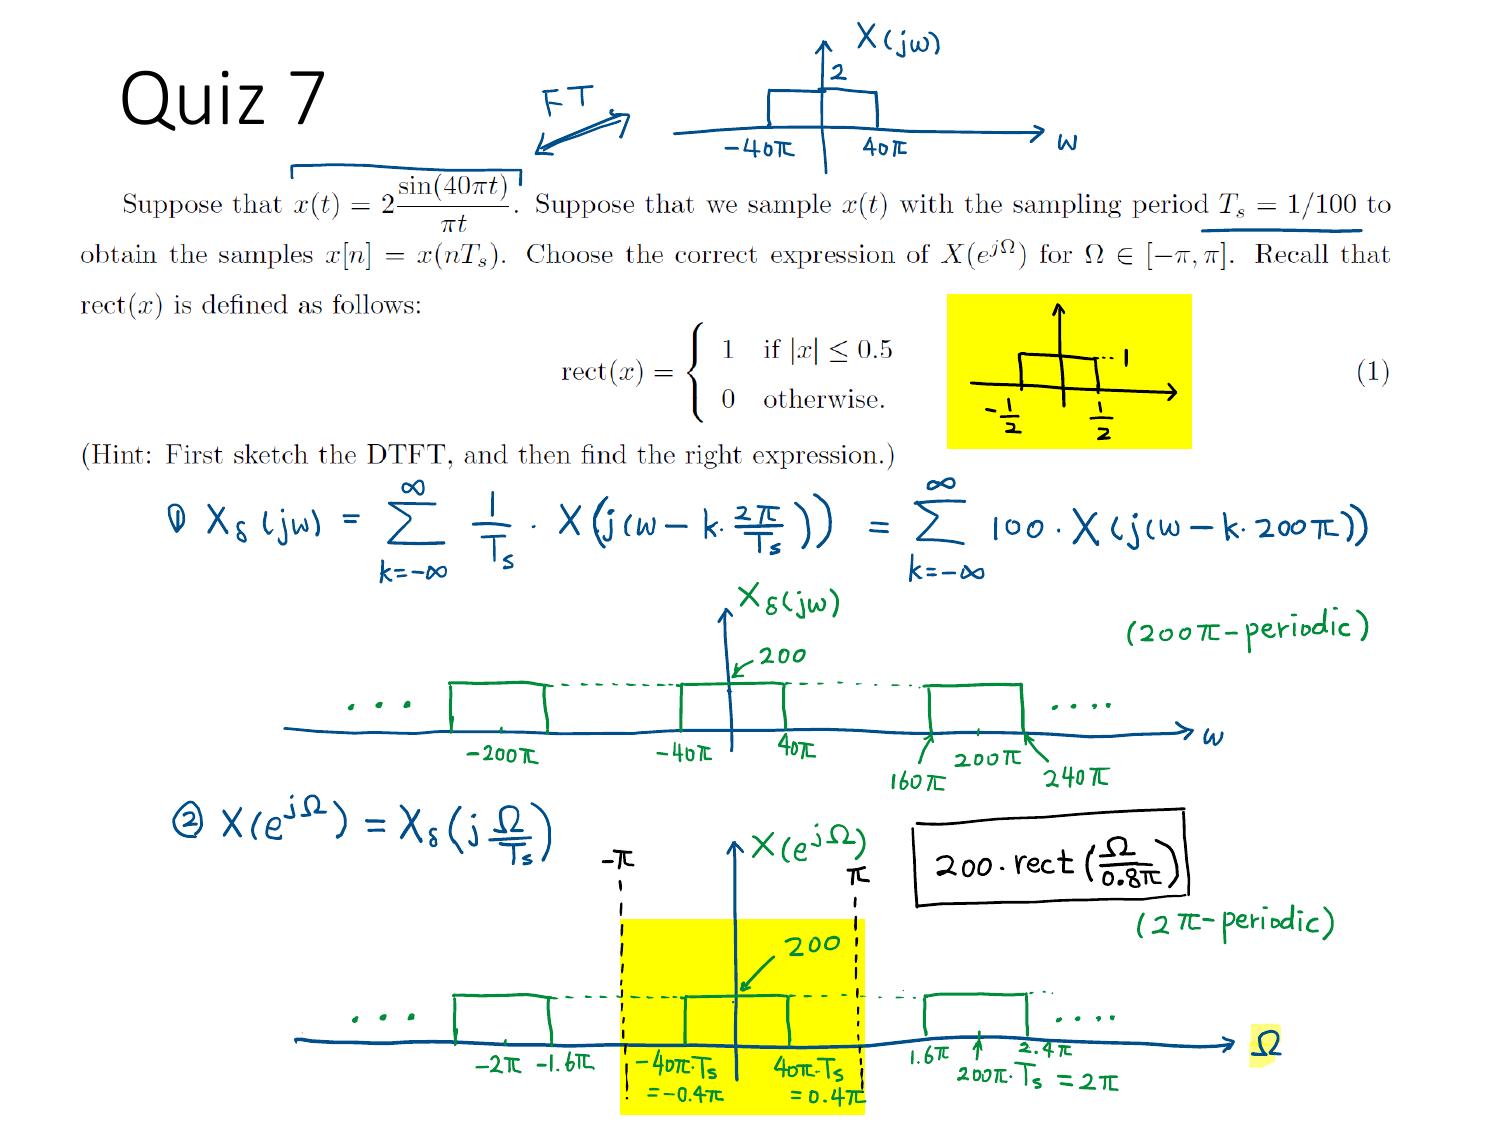 X(jω)
2
FT
-40π 40π ω
Quiz 7
Suppose that x(t) = 2 sin(40πt)/πt. Suppose that we sample x(t) with the sampling period Ts = 1/100 to
obtain the samples x[n] = x(nTs). Choose the correct expression of X(e^{jΩ}) for Ω ∈ [−π, π]. Recall that
rect(x) is defined as follows:
rect(x) = { 1 if |x| ≤ 0.5
0 otherwise. (1)
1
-1/2 1/2
(Hint: First sketch the DTFT, and then find the right expression.)
① Xδ(jω) = ∑_{k=-∞}^{∞} 1/Ts · X(j(ω - k·2π/Ts)) = ∑_{k=-∞}^{∞} 100 · X(j(ω - k·200π))
Xδ(jω)
(200π-periodic)
200
... ....
-200π -40π 40π 160π 200π 240π ω
② X(e^{jΩ}) = Xδ(j Ω/Ts)
-π X(e^{jΩ}) π
200·rect(Ω/0.8π)
(2π-periodic)
200
... ....
-2π -1.6π -40π·Ts 40π·Ts 1.6π 2.4π Ω
= -0.4π = 0.4π 200π·Ts = 2π